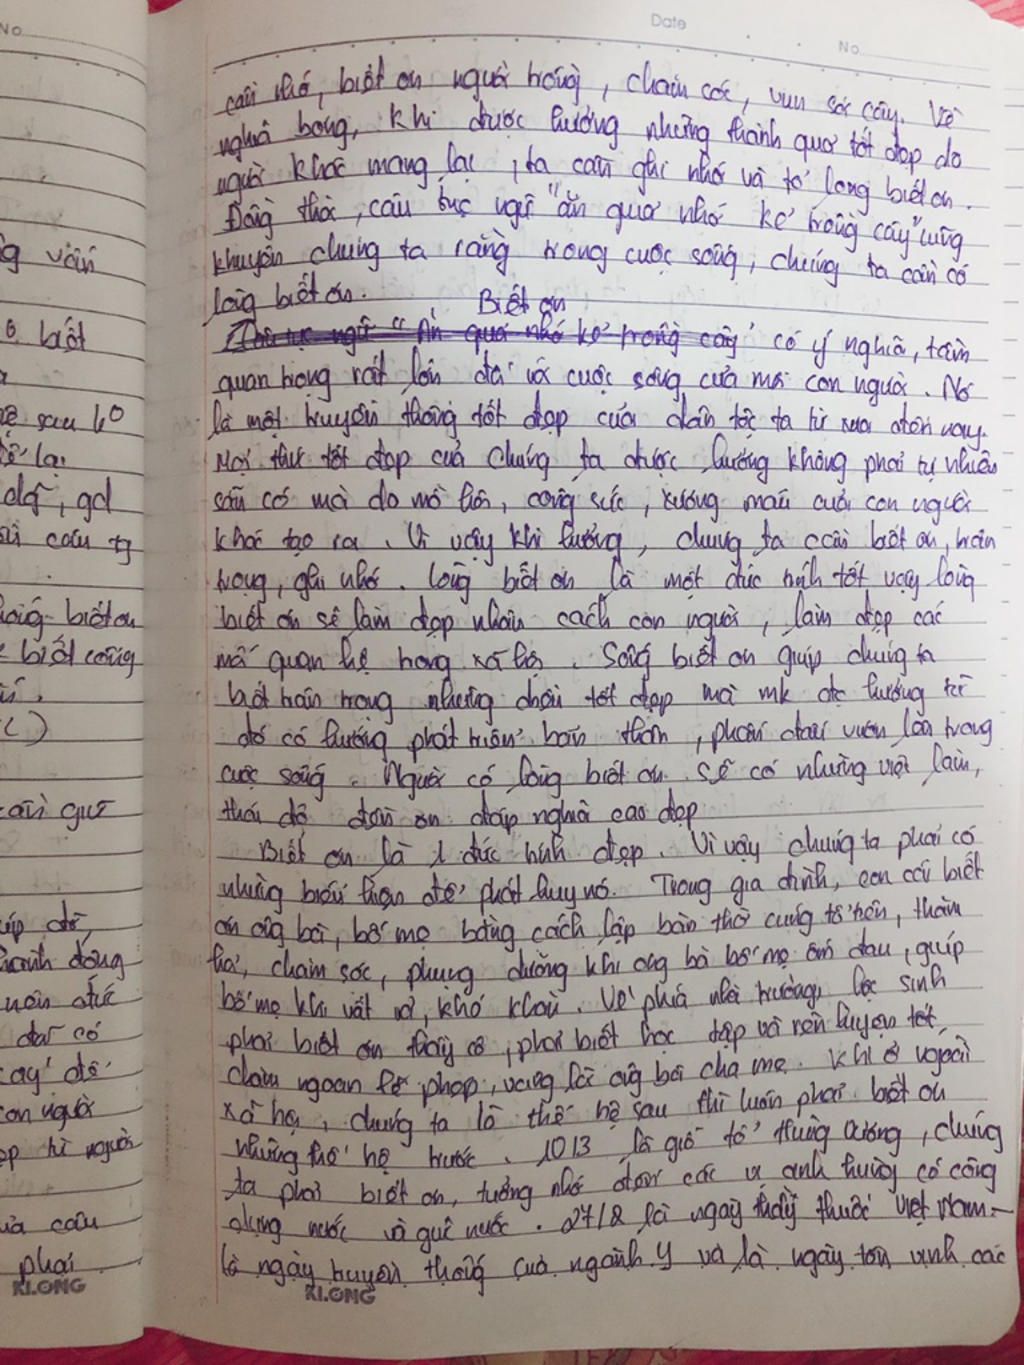 Date
No
No
cần nhớ, biết ơn người trồng, chăm sóc, vun xới cây. Về
nghĩa bóng, khi được hưởng những thành quả tốt đẹp do
người khác mang lại, ta cần ghi nhớ và tỏ lòng biết ơn.
Đồng thời, câu tục ngữ "ăn quả nhớ kẻ trồng cây" cũng
khuyên chúng ta rằng trong cuộc sống, chúng ta cần có
lòng biết ơn.
Biết ơn
Câu tục ngữ "Ăn quả nhớ kẻ trồng cây" có ý nghĩa, tầm
quan trọng rất lớn đối với cuộc sống của mỗi con người. Nó
là một truyền thống tốt đẹp của dân tộc ta từ xưa đến nay.
Mọi thứ tốt đẹp của chúng ta được hưởng không phải tự nhiên
sẵn có mà do mồ hôi, công sức, xương máu của con người
khác tạo ra. Vì vậy khi hưởng, chúng ta cần biết ơn, trân
trọng, ghi nhớ. Lòng biết ơn là một đức tính tốt vậy lòng
biết ơn sẽ làm đẹp nhân cách con người, làm đẹp các
mối quan hệ trong xã hội. Sống biết ơn giúp chúng ta
biết trân trọng những điều tốt đẹp mà mk đc hưởng từ
đó có hướng phát triển bản thân, phấn đấu vươn lên trong
cuộc sống. Người có lòng biết ơn sẽ có những việc làm,
thái độ đền ơn đáp nghĩa cao đẹp
Biết ơn là 1 đức tính đẹp. Vì vậy chúng ta phải có
những biểu hiện để phát huy nó. Trong gia đình, con cái biết
ơn ông bà, bố mẹ bằng cách lập bàn thờ cúng tổ tiên, thăm
hỏi, chăm sóc, phụng dưỡng khi ông bà bố mẹ ốm đau, giúp
bố mẹ khi vất vả, khó khăn. Về phía nhà trường, học sinh
phải biết ơn thầy cô, phải biết học tập và rèn luyện tốt,
chăm ngoan lễ phép, vâng lời ông bà cha mẹ. Khi ở ngoài
xã hội, chúng ta là thế hệ sau thì luôn phải biết ơn
những thế hệ trước. 10/3 là giỗ tổ Hùng Vương, chúng
ta phải biết ơn, tưởng nhớ đến các vị anh hùng có công
dựng nước và giữ nước. 27/2 là ngày thầy thuốc Việt Nam -
là ngày truyền thống của ngành Y và là ngày tôn vinh các
KLONG
g vấn
biết
sau
lại
gd
câu tg
biết ơn
biết công
cần giữ
giúp đỡ,
hành động
đức
đã có
cây" để
con người
người
câu
phải
KLONG